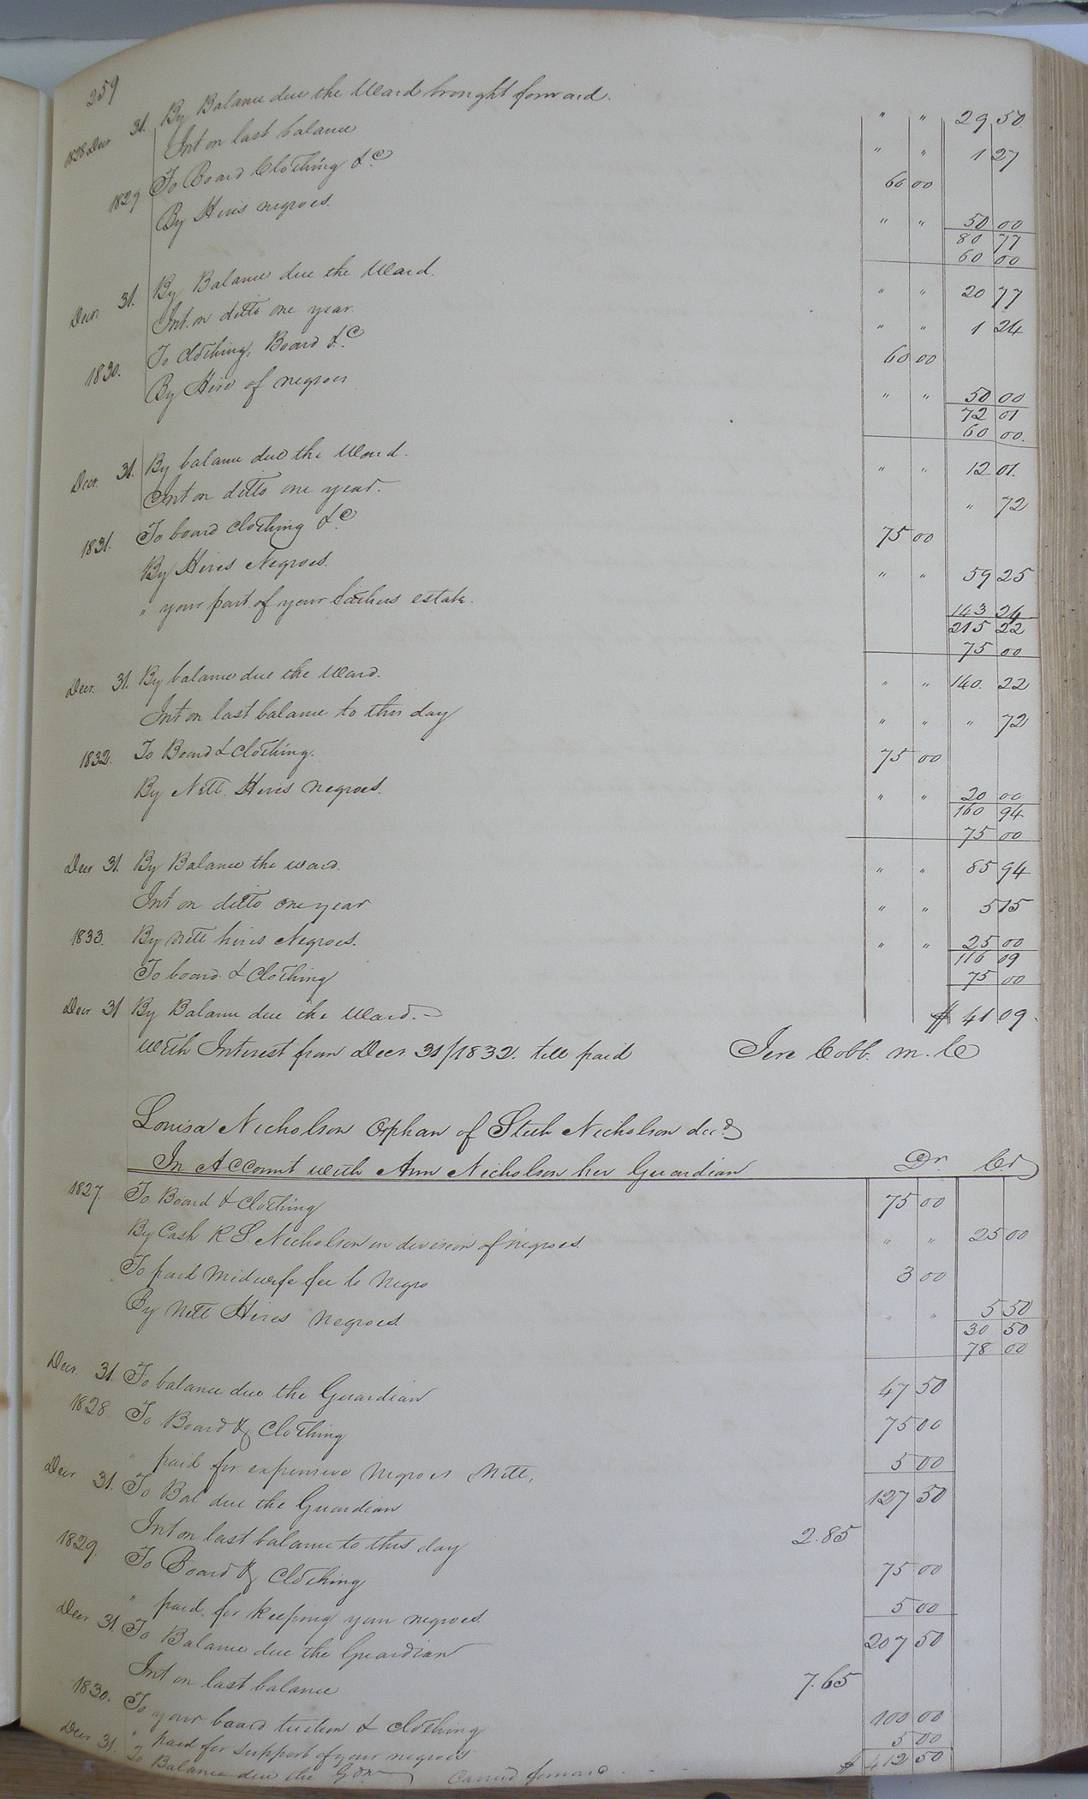 259
1828 Decr 31. By Balance due the Ward brought forward. " " 29 50
Int on last balance " " 1 27
1829 To Board Clothing &c 60 00
By Hires negroes. " " 50 00
80 77
60 00
Decr 31. By Balance due the Ward. " " 20 77
Int. on ditto one year. " " 1 24
1830. To Clothing, Board &c 60 00
By Hire of negroes " " 50 00
72 01
60 00.
Decr. 31. By balance due the Ward. " " 12 01.
Int on ditto one year. " 72
1831. To board clothing &c 75 00
By Hires Negroes. " " 59 25
" your part of your fathers estate. 143 24
215 22
75 00
Decr. 31. By balance due the Ward. " " 140. 22
Int on last balance to this day " " " 72
1832. To Board & Clothing. 75 00
By Nett. Hires Negroes. " " 20 00
160 94
75 00
Decr 31. By Balance the ward. " " 85 94
Int on ditto one year " " 5 15
1833. By nett hires Negroes. " " 25 00
116 09
To board & Clothing 75 00
Decr 31 By Balance due the Ward. $ 41 09.
With Interest from Decr 31/1832. till paid Jere Cobb. m. C
Louisa Nicholson Orphan of Steth Nicholson decd
In Account with Ann Nicholson her Guardian Dr Cr
1827. To Board & Clothing 75 00
By Cash R S Nicholson in division of negroes " " 25 00
To paid midwife fee to Negro 3 00
By Nett Hires negroes " " 5 50
30 50
78 00
Decr. 31. To balance due the Guardian 47 50
1828 To Board & Clothing 75 00
" paid for expensive Negroes Nett, 5 00
Decr 31. To Bal due the Guardian 127 50
Int on last balance to this day 2.85
1829. To Board & Clothing 75 00
" paid, for keeping your negroes 5 00
Decr 31. To Balance due the Guardian 207 50
Int on last balance 7.65
1830. To your board tuition & clothing 100 00
" paid for support of your negroes 5 00
Decr 31. To Balance due the Gdn carried forward. $ 412 50